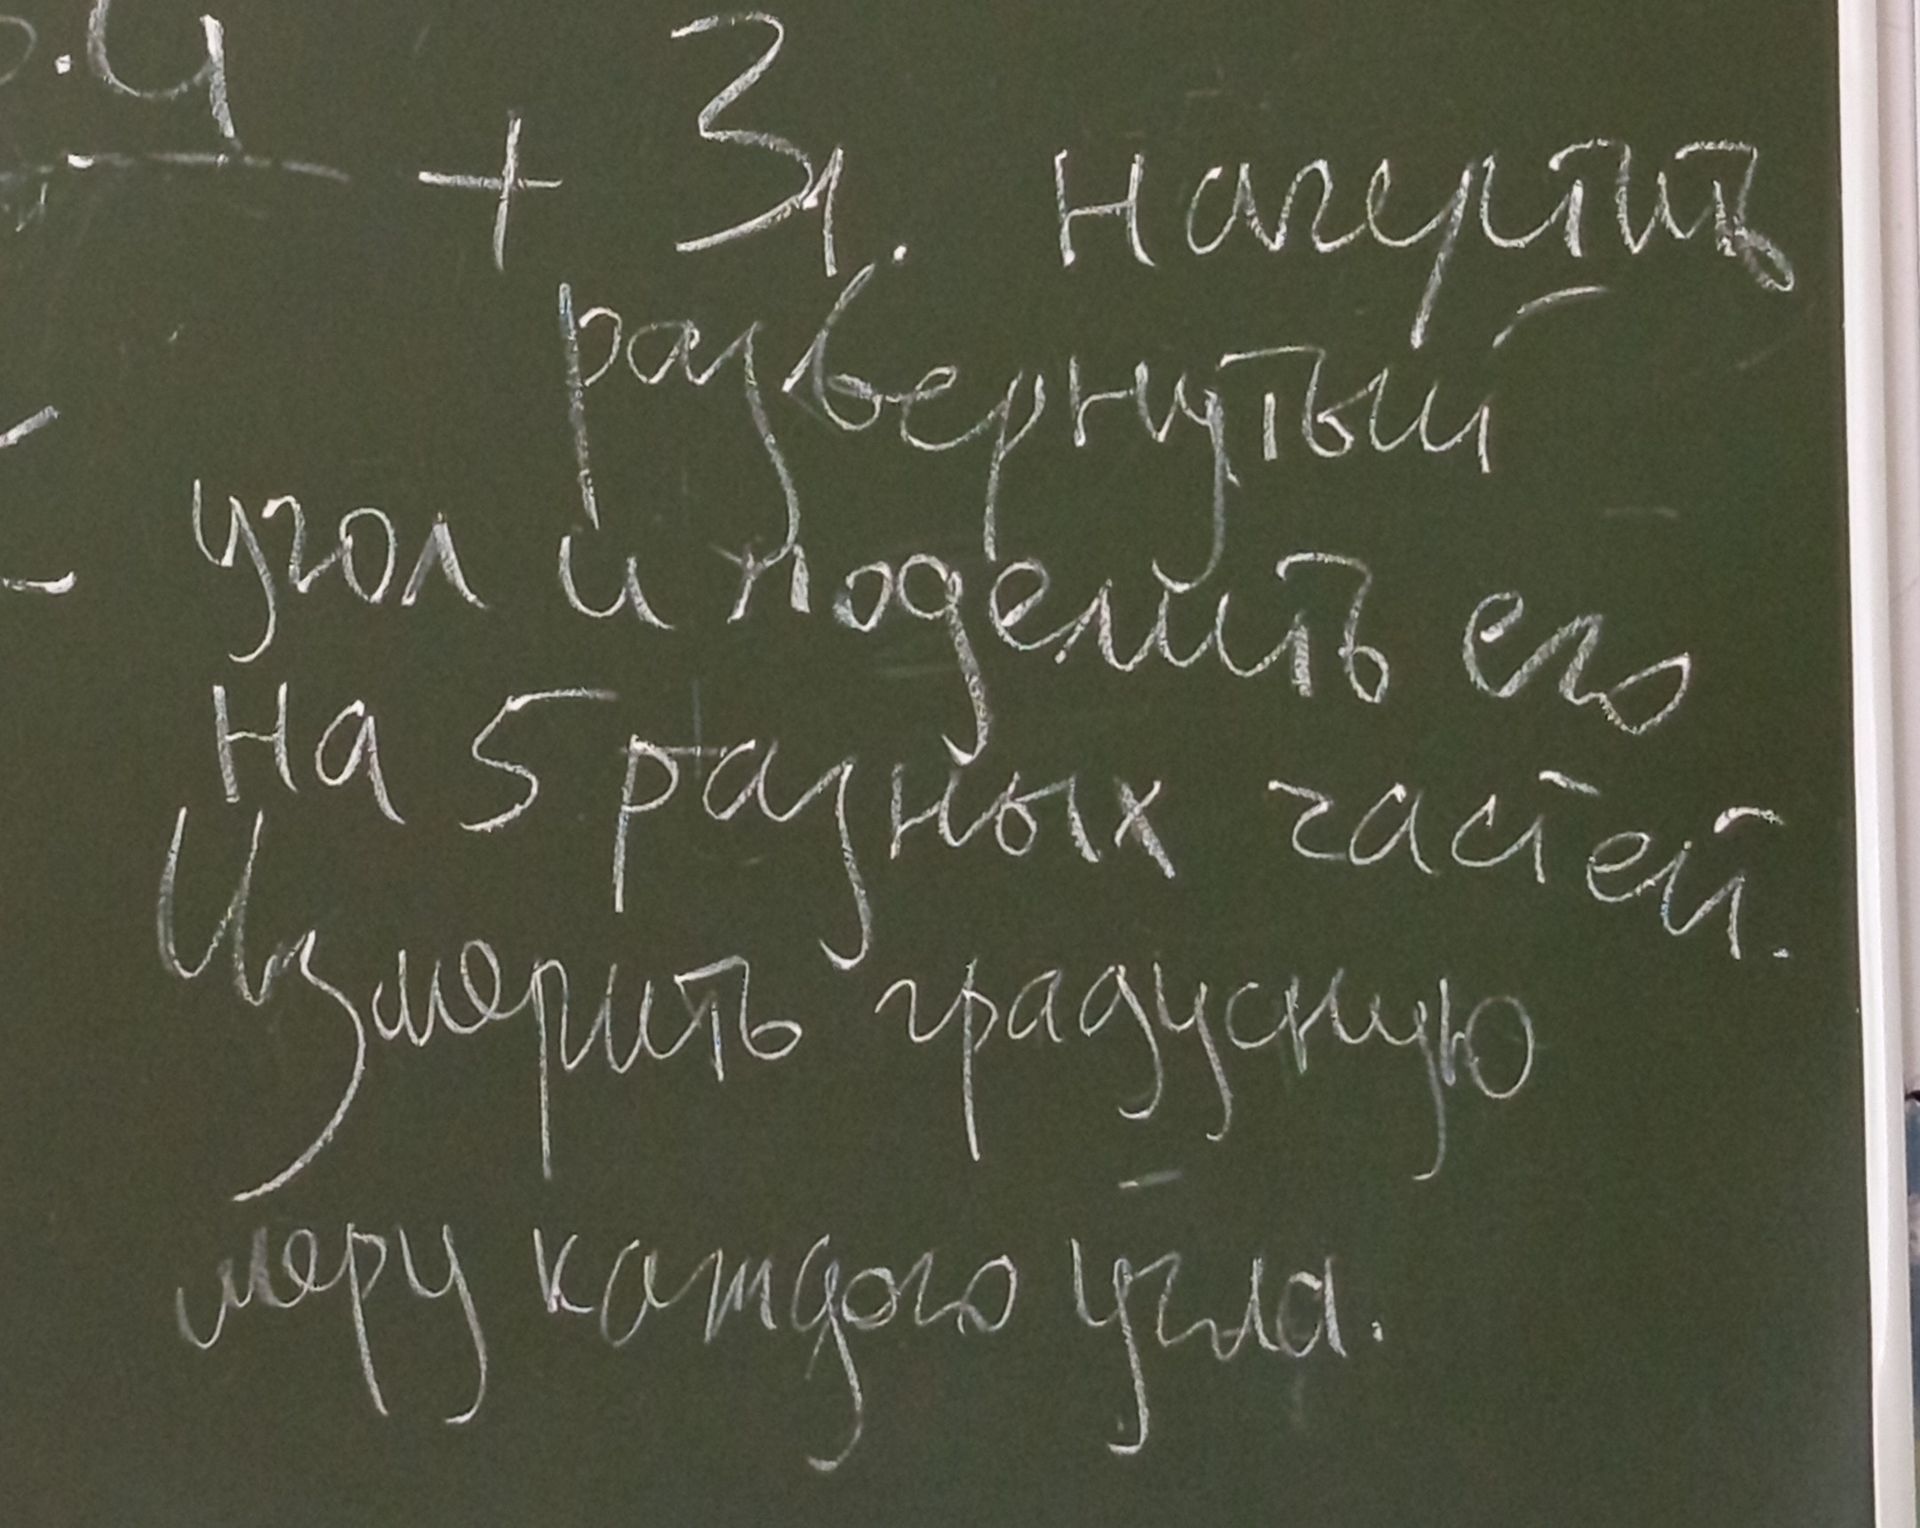 .4
+ Зд. начертить
развернутый
угол и поделить его
на 5 разных частей.
Измерить градусную
меру каждого угла.